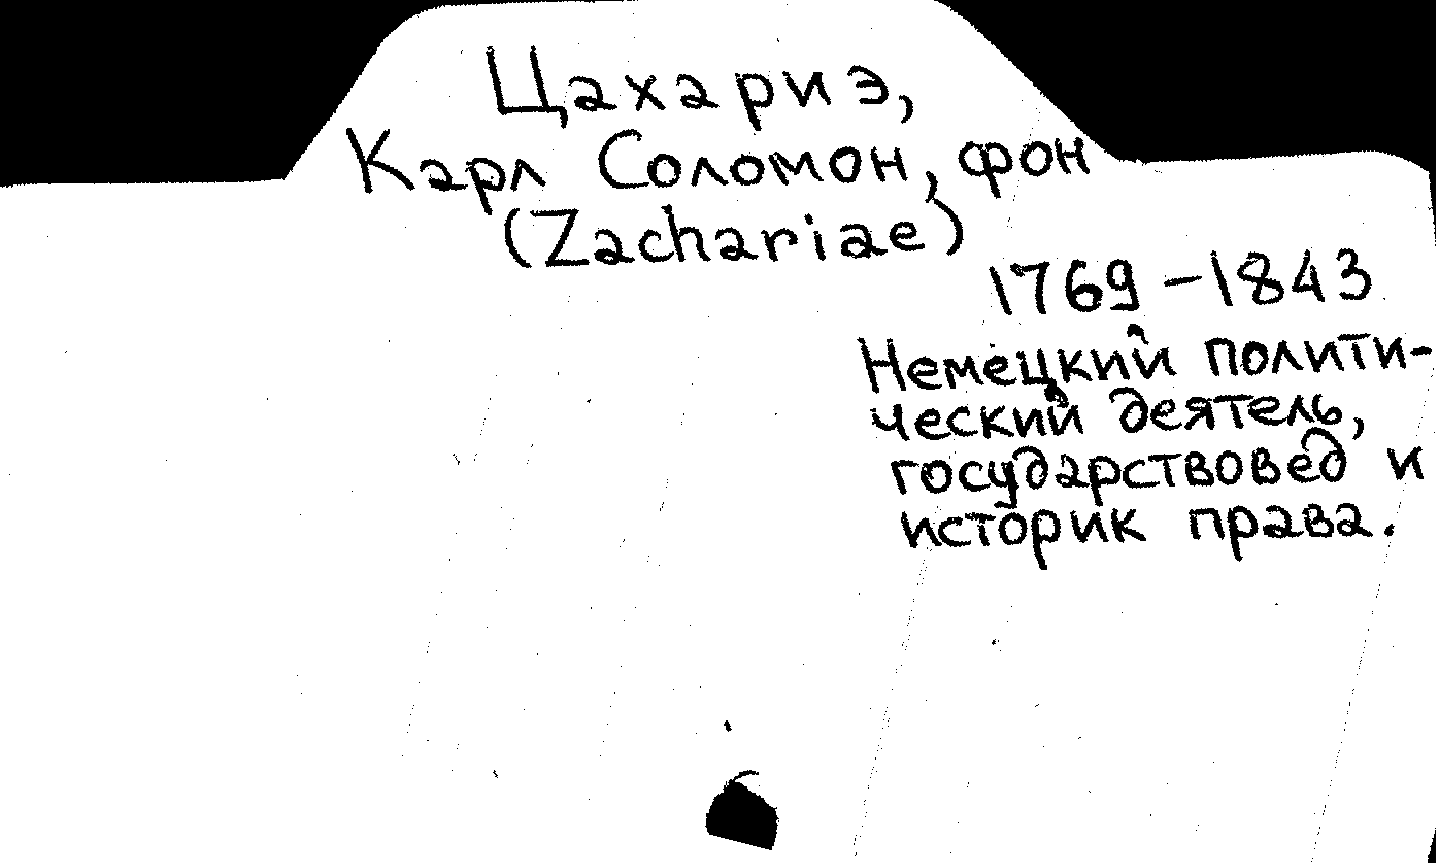 Цахариэ,
Карл Соломон, фон
(Zachariae)
1769-1843
Немецкий полити-
ческий деятель,
государствовед и
историк права.